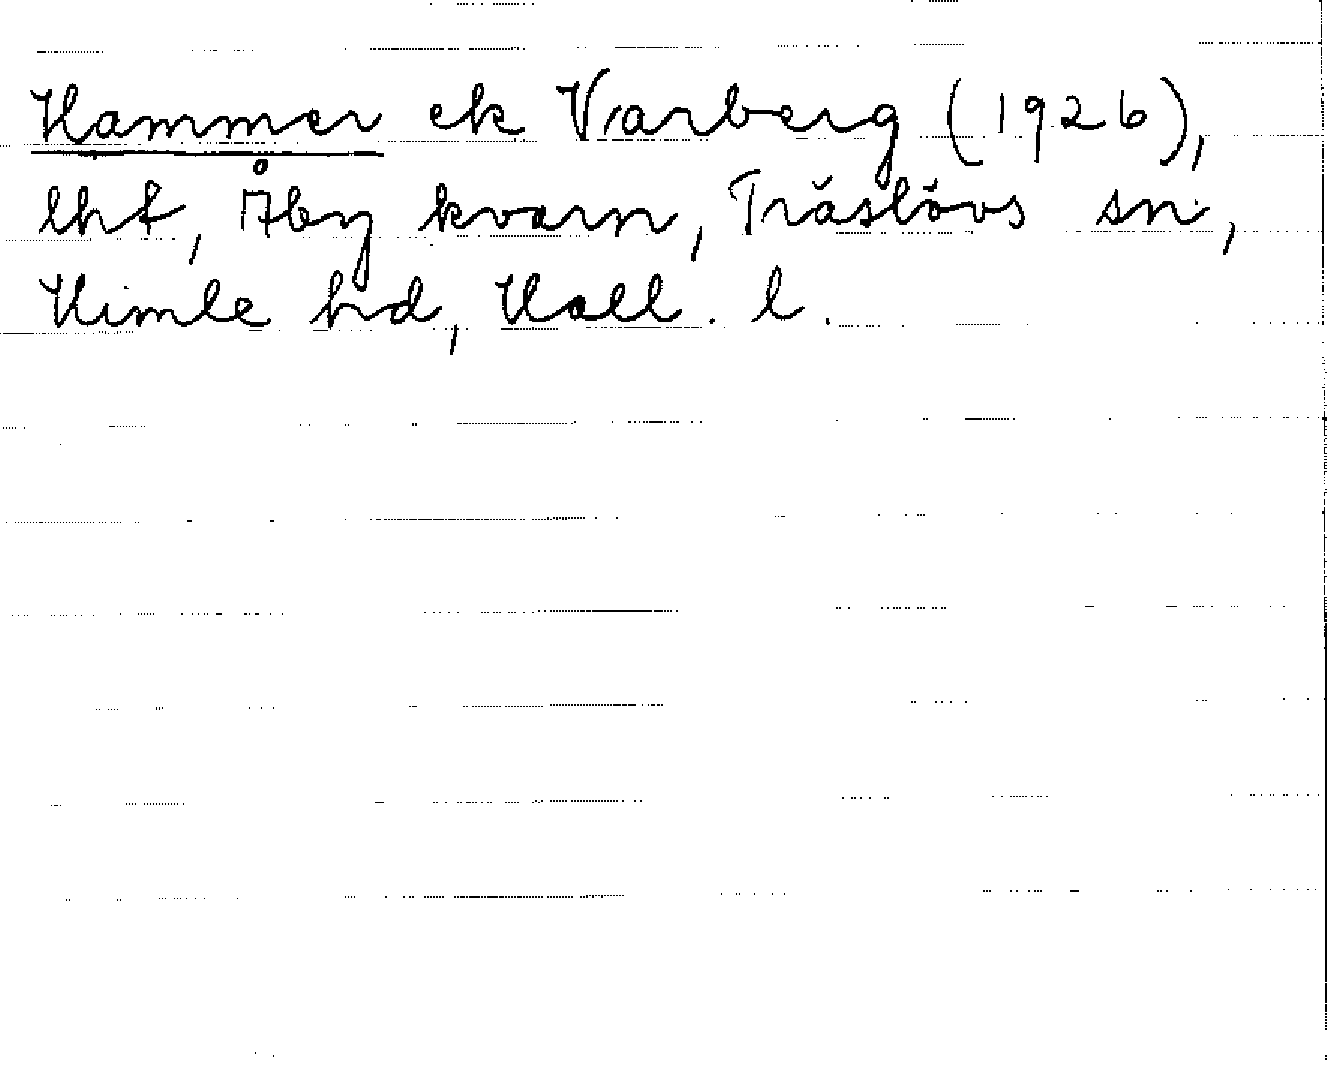 Hammer ek Varberg (1926),
lht, Åby kvarn, Träslövs sn,
Himle hd, Hall. l.